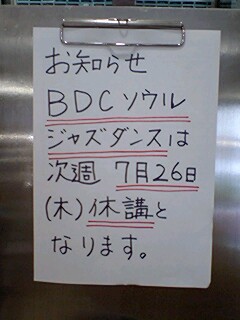 お知らせ
BDCソウル
ジャズダンスは
次週 7月26日
(木)休講と
なります。